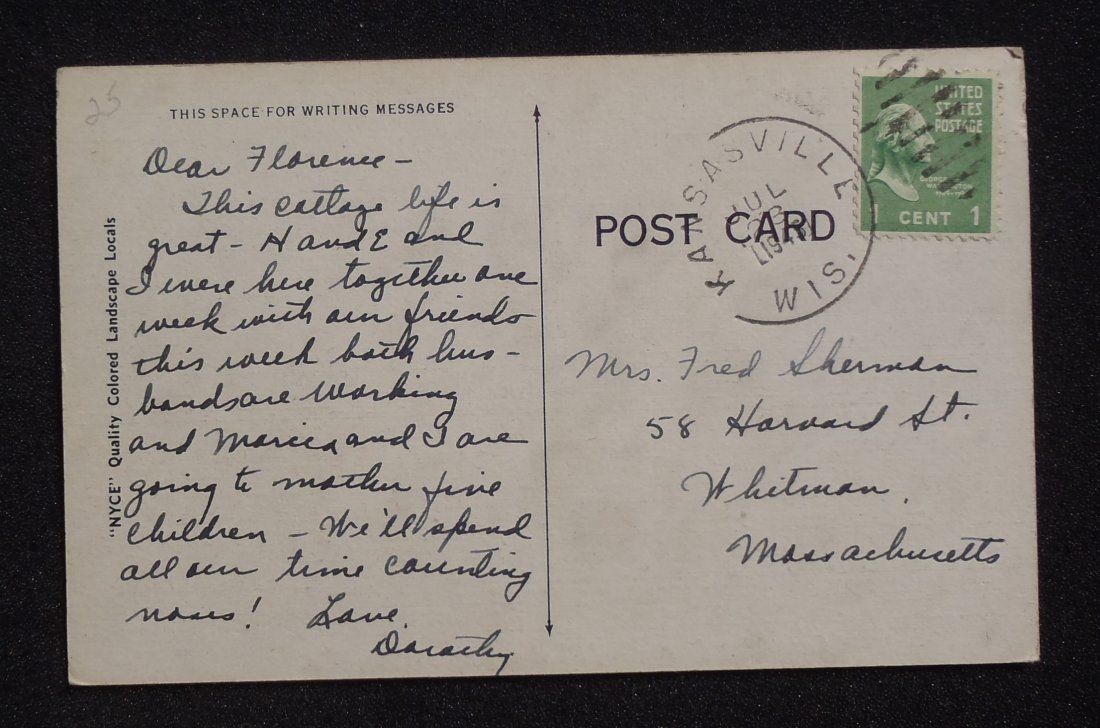 25
THIS SPACE FOR WRITING MESSAGES
Dear Florence –
This cottage life is
great – H and E and
I were here together one
week with our friends
this week both hus-
bands are working
and Marcia and I are
going to mother five
children – We'll spend
all our time counting
noses! Love,
Dorothy
"NYCE" Quality Colored Landscape Locals
UNITED
STATES
POSTAGE
1 CENT 1
KANSASVILLE
JUL
WIS.
POST CARD
Mrs. Fred Sherman
58 Harvard St.
Whitman,
Massachusetts